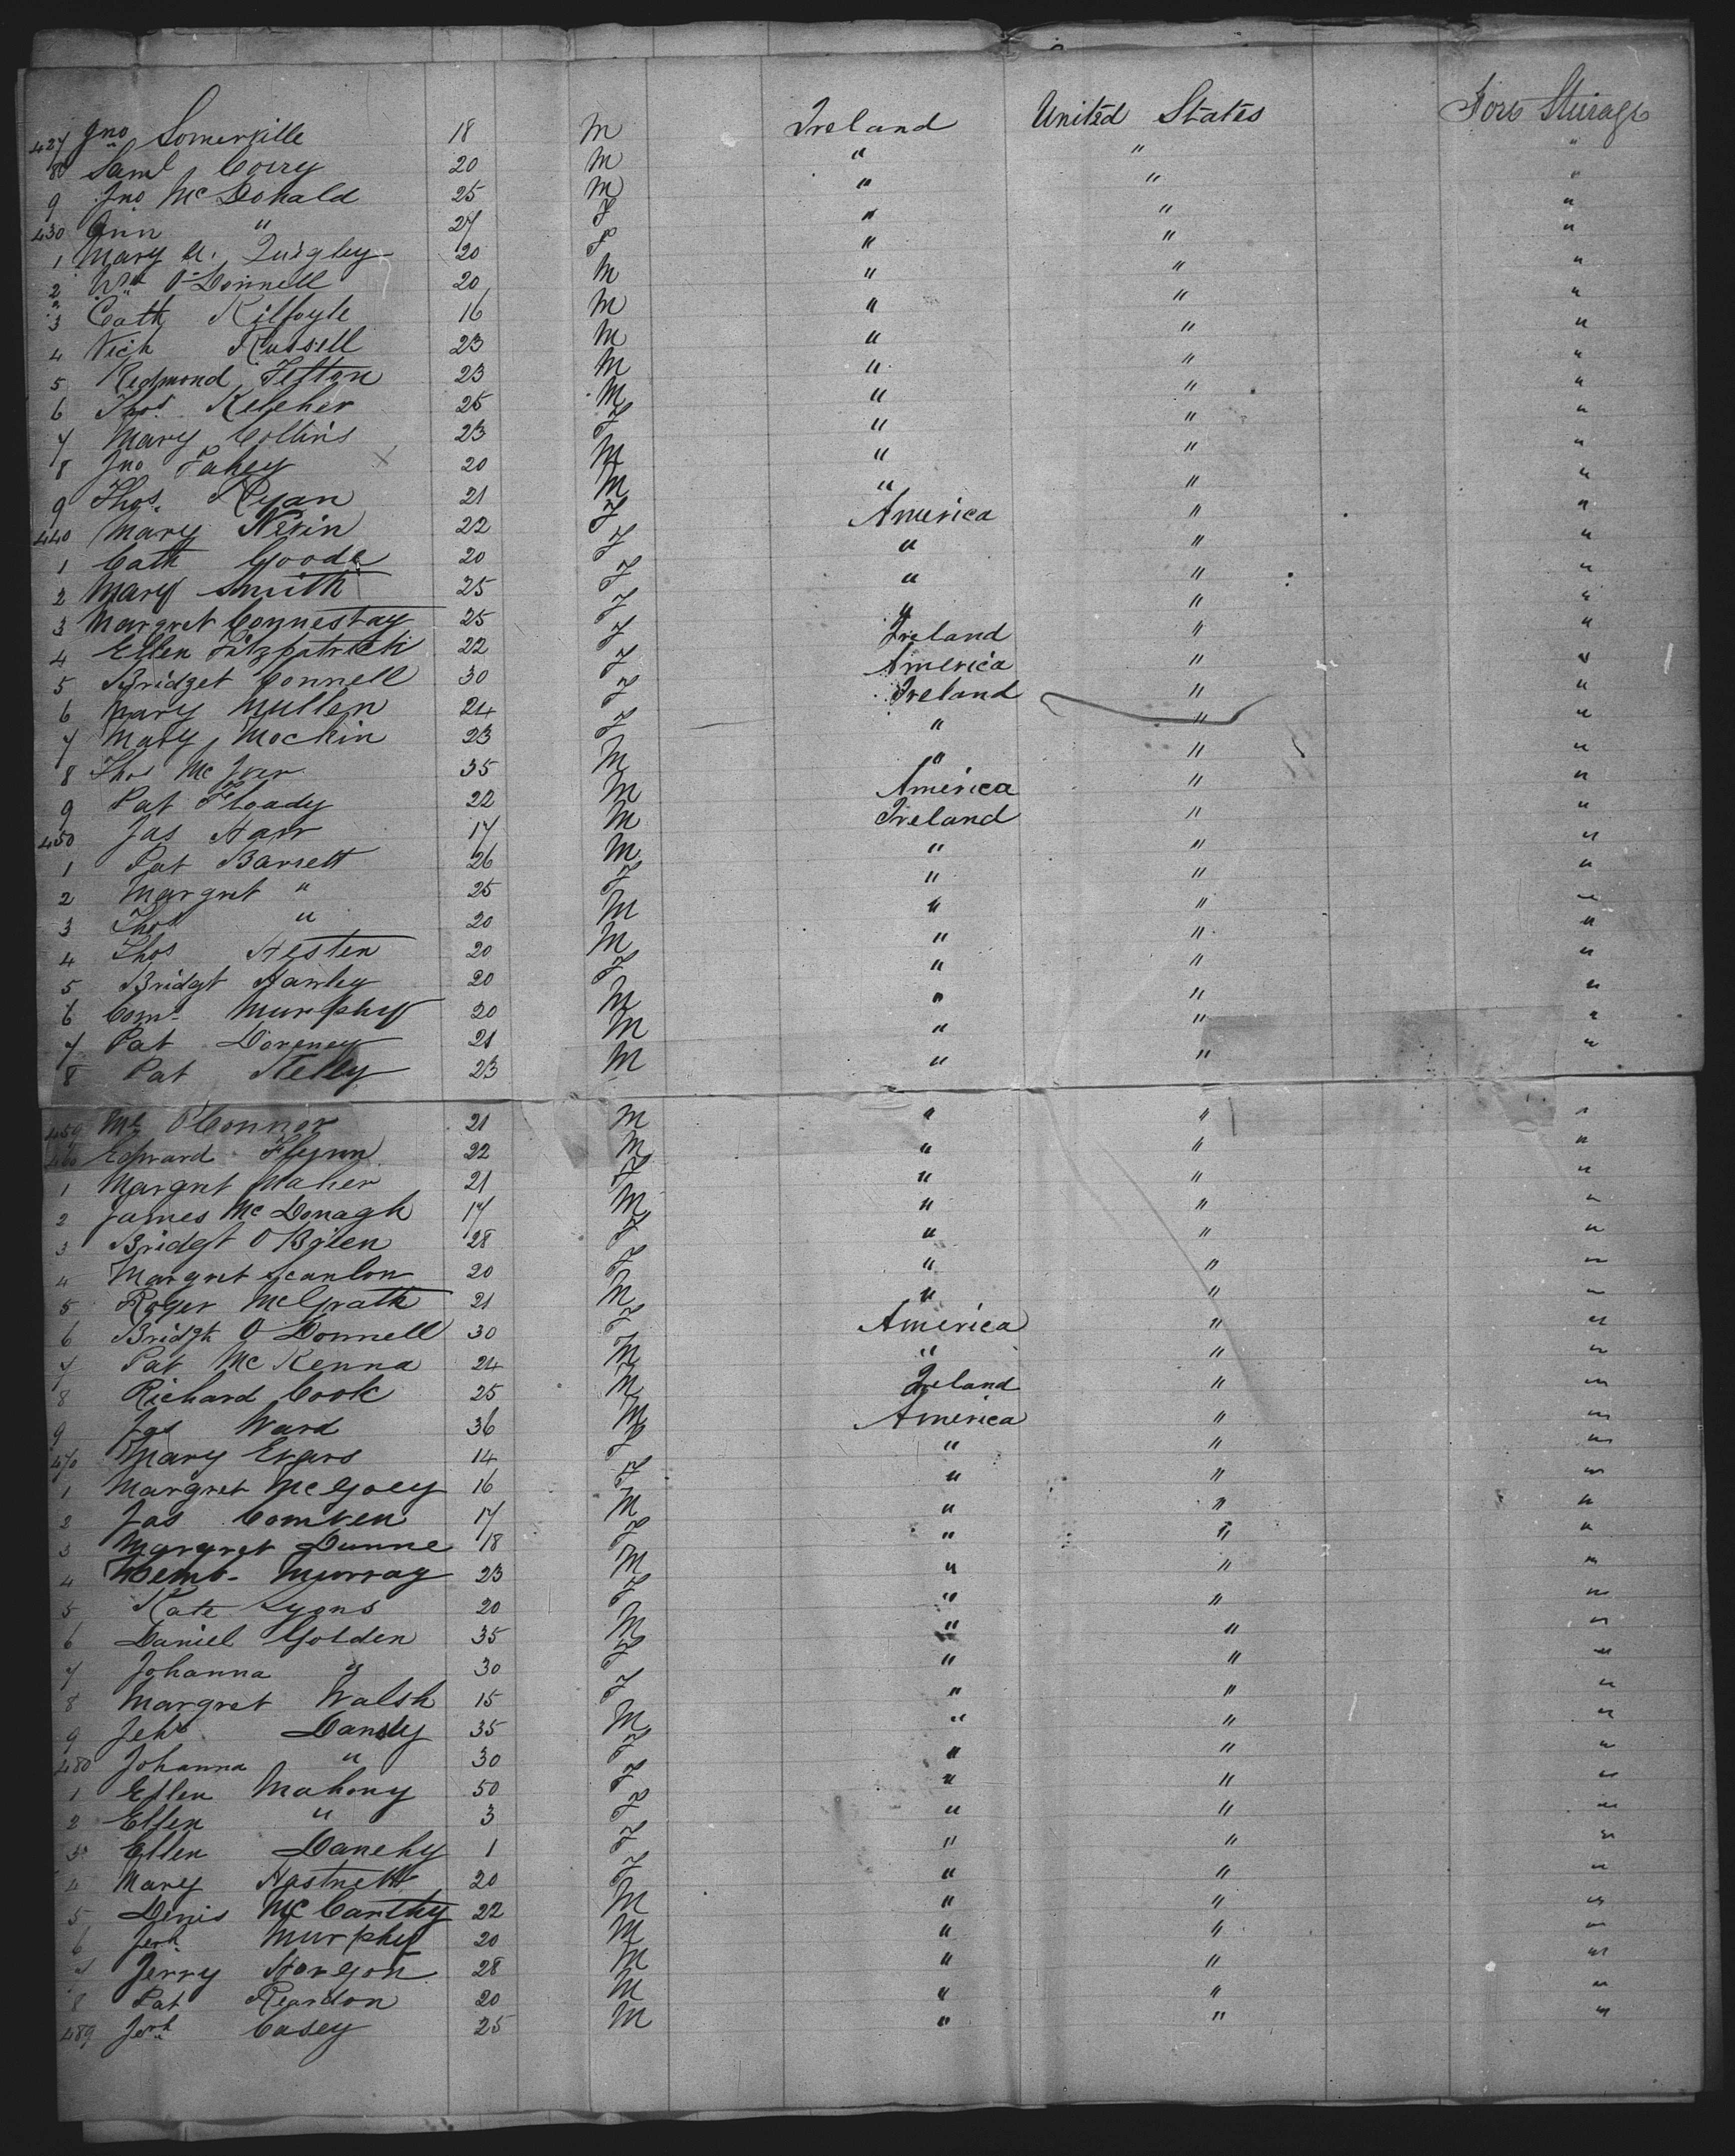 427 Jno Somerville 18 M Ireland United States Fore Steirage
8 Saml Corry 20 M " " "
9 Jno McDonald 25 M " " "
430 Ann " 27 F " " "
1 Mary A. Quigley 20 F " " "
2 Wm O'Donnell 20 M " " "
3 Cath Kilfoyle 16 M " " "
4 Nich Russell 23 M " " "
5 Redmond 23 M " " "
6 Thos Keleher 25 M " " "
7 Mary Collins 23 F " " "
8 Jno Fahey 20 M " " "
9 Thos. Ryan 21 M " " "
440 Mary Nevin 22 F America " "
1 Cath Goode 20 F " " "
2 Mary Smith 25 F " " "
3 Margret Connestay 25 F " " "
4 Ellen Fitzpatrick 22 F Ireland " "
5 Bridget Connell 30 F America " "
6 Mary Mullen 24 F Ireland " "
7 Mary Mockin 23 F " " "
8 Thos McIver 35 M " " "
9 Pat 22 M America " "
450 Jas Harr 17 M Ireland " "
1 Pat Barrett 26 M " " "
2 Margret " 25 F " " "
3 Thos " 20 M " " "
4 Thos Hesten 20 M " " "
5 Bridgt Hanley 20 F " " "
6 Corns Murphy 20 M " " "
7 Pat Doreney 21 M " " "
8 Pat Kelly 23 M " " "
459 Ml O'Connor 21 M " " "
460 Edward Flynn 22 M " " "
1 Margret Maher 21 F " " "
2 James McDonagh 17 M " " "
3 Bridgt O'Brien 28 F " " "
4 Margret Scanlon 20 F " " "
5 Roger McGrath 21 M " " "
6 Bridgt O Donnell 30 F America " "
7 Pat McKenna 24 M " " "
8 Richard Cook 25 M Ireland " "
9 Jas Ward 36 M America " "
470 Mary Evars 14 F " " "
1 Margret McGoey 16 F " " "
2 Jas 17 M " " "
3 Margret Dunne 18 F " " "
4 Murray 23 M " " "
5 Kate Lyons 20 F " " "
6 Daniel Golden 35 M " " "
7 Johanna " 30 F " " "
8 Margret Walsh 15 F " " "
9 35 M " " "
480 Johanna " 30 F " " "
1 Ellen Mahony 50 F " " "
2 Ellen " 3 F " " "
3 Ellen Danehy 1 F " " "
4 Mary Hastnett 20 F " " "
5 Denis McCarthy 22 M " " "
6 Jerh Murphy 20 M " " "
7 Jerry Horgon 28 M " " "
8 Pat Reardon 20 M " " "
489 Jerh Casey 25 M " " "